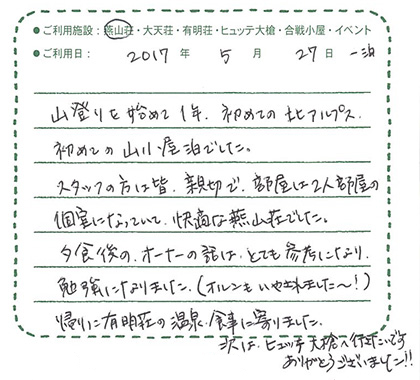 ●ご利用施設：燕山荘・大天荘・有明荘・ヒュッテ大槍・合戦小屋・イベント
●ご利用日：2017年5月27日 一泊
山登りを始めて1年、初めての北アルプス、
初めての山小屋泊でした。
スタッフの方は皆、親切で、部屋は2人部屋の
個室になっていて、快適な燕山荘でした。
夕食後の、オーナーの話は、とても参考になり、
勉強になりました。(オルンもいやされました〜！)
帰りに有明荘の温泉、食事に寄りました。
次は、ヒュッテ大槍へ行きたいです
ありがとうございました!!